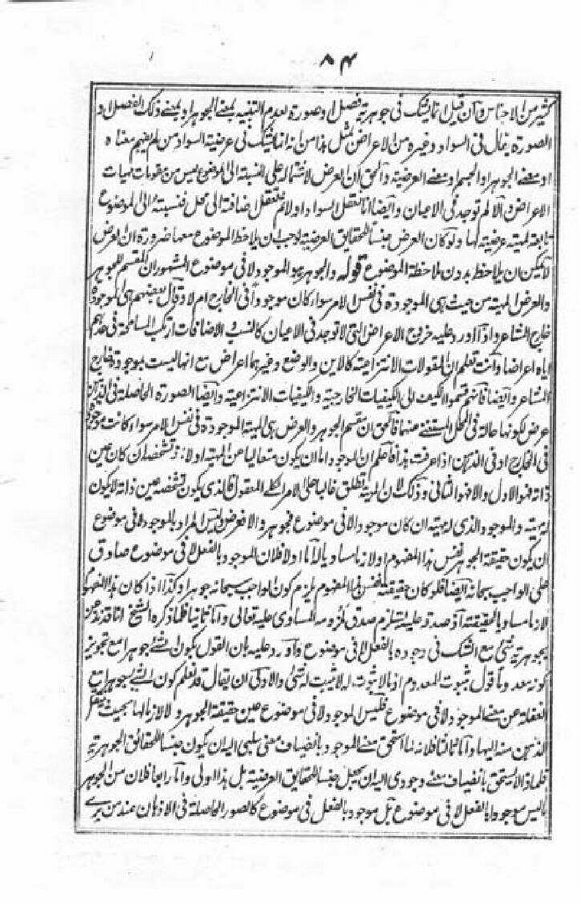 ۸۴
كثير من الاجناس فان قيل انما يشك في جوهرية فصل او صورة لعدم التنبيه لمعنى الجوهر او لمعنى ذلك الفصل او
الصورة يقال في السواد وغيره من الاعراض مثل هذا من انه انما يشك في عرضية السواد من لم يفهم معناه
او معنى الجوهر والجسم او معنى العرضية والحق ان العرض لاشتماله على النسبة الى الموضوع ليس من مقومات مهيات
الاعراض والا لم توجد في الاعيان وايضا انا نعقل السواد اولا ثم نعقل اضافة الى محل فنسبته الى الموضوع
تابعة لمهيته عرضية لها ولو كان العرض جنسا للحقائق العرضية لاوجب ان يلاحظ الموضوع معها ضرورة ان العرض
لا يمكن ان يلاحظ بدون ملاحظة الموضوع قوله والجوهر هو الموجود لا في موضوع المشهور ان المنقسم للجوهر
والعرض المهية من حيث هي الموجودة في نفس الامر سواء كان موجودا في الخارج ام لا وقال بعضهم هي الموجودة
خارج المشاعر واذا اورد عليه خروج الاعراض التي لا توجد في الاعيان كالنسب والاضافات ارتكب المسامحة في عدهم
اياه اعراضا وانت تعلم ان المقولات الانتزاعية كالاين والوضع وغيرهما اعراض مع انها ليست بموجودة خارج
المشاعر وايضا فانهم قسموا الكيف الى الكيفيات الخارجية والكيفيات الانتزاعية وايضا الصورة الحاصلة في الذهن
عرض لكونها حالة في المحل المستغني عنها فالحق ان مقسم الجوهر والعرض هي المهية الموجودة في نفس الامر سواء كانت موجودة
في الخارج او في الذهن اذا عرفت هذا فاعلم ان الموجود اما ان يكون متعاليا عن المهية اولا وتشخصه ان كان عين
ذاته فهو الاول والا فهو الثاني وذلك لان المهية تطلق غالبا على الامر الكلي المعقول فالذي يكون تشخصه عين ذاته لا يكون
له مهية والموجود الذي له مهية ان كان موجودا لا في موضوع فجوهر والا فعرض وليس المراد بالموجود لا في موضوع
ان يكون حقيقة الجوهر نفس هذا المفهوم او لازما مساويا له اما اولا فلان الموجود بالفعل لا في موضوع صادق
على الواجب سبحانه ايضا فلو كان حقيقته نفس هذا المفهوم يلزم كون الواجب سبحانه جوهرا وكذا اذا كان هذا المفهوم
لازما مساويا لحقيقته اذ صدقه عليه يستلزم صدق ملزومه المساوي عليه تعالى واما ثانيا فلما ذكره الشيخ انا قد نجزم
بجوهرية شيء مع الشك في وجوده بالفعل لا في موضوع واورد عليه بان القول بكون الشيء جوهرا مع تجويز
كونه بعد وما قول ثبوت المعدوم اذ ما لا ثبوت له لا يثبت له شيء والاولى ان يقال قد نعلم كون الشيء جوهرا مع
الغفلة عن معنى الموجود لا في موضوع فليس الموجود لا في موضوع عين حقيقة الجوهر ولا لازما لها بحيث ينتقل
الذهن منه اليها واما ثالثا فلانه لما استحق معنى الموجود بانضياف معنى سلبي اليه ان يكون جنسا للحقائق الجوهرية
فلماذا لا يستحق بانضياف معنى وجودي اليه ان يجعل جنسا للحقائق العرضية بل هذا اولى واما رابعا فلان من الجوهر
ما ليس موجودا بالفعل لا في موضوع بل موجود بالفعل في موضوع كالصور الحاصلة في الاذهان عند من يرى